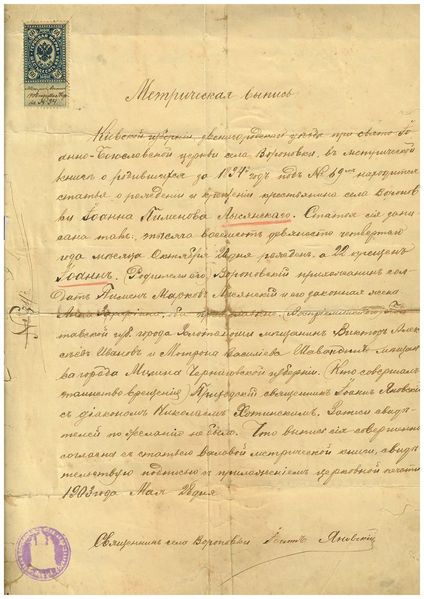 Метрическая выпись
Кіевской губерніи, Звенигородской уѣзда при свято Іо-
анно-Богословской церкви села Вороновки, въ метрической
книгѣ о родившихся за 1894 годъ подъ № 69 находится
статья о рожденіи и крещеніи крестьянина села Воронов
ки Іоанна Пименова Лысянскаго. Статья сія запи
сана такъ: тысяча восемьсотъ девяносто четвертаго
года мѣсяца Октября дня рожденъ, а 22 крещенъ
Іоаннъ. Родители его: Вороновскій прихожанинъ сол
датъ Пименъ Марковъ Лысянскій и его законная жена
Пол
тавской губ. города Золотоноши мѣщанинъ Викторъ Алек
сѣевъ Ивановъ и Матрона Василіева мѣщан
ка города Мглина Черниговской губерніи. Кто совершалъ
таинство крещенія: Приходскій священникъ Іоаннъ Яновскій
съ діакономъ Николаемъ Хотинскимъ. Записи свидѣ
телей по желанію не было. Что выпись сія совершенно
согласна съ статьею валовой метрической книги, свидѣ
тельствую подписью съ приложеніемъ церковной печати
1903 года Мая дня
Священникъ села Вороновки Іоаннъ Яновскій